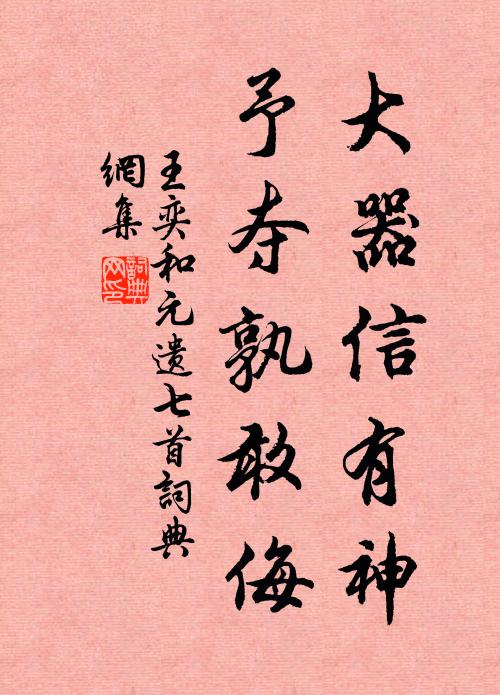 大器信有神
予夺孰敢侮
王奕和元遗七首詞典
網集
詞典網印